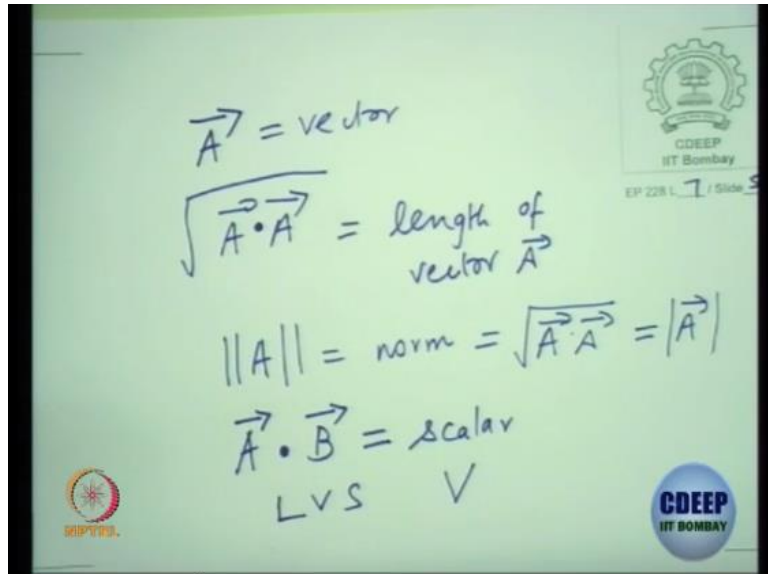 CDEEP
IIT Bombay
EP 228 L 7 / Slide 5
A⃗ = vector
√(A⃗ • A⃗) = length of
vector A⃗
||A|| = norm = √(A⃗ · A⃗) = |A⃗|
A⃗ • B⃗ = scalar
LVS V
NPTEL
CDEEP
IIT BOMBAY